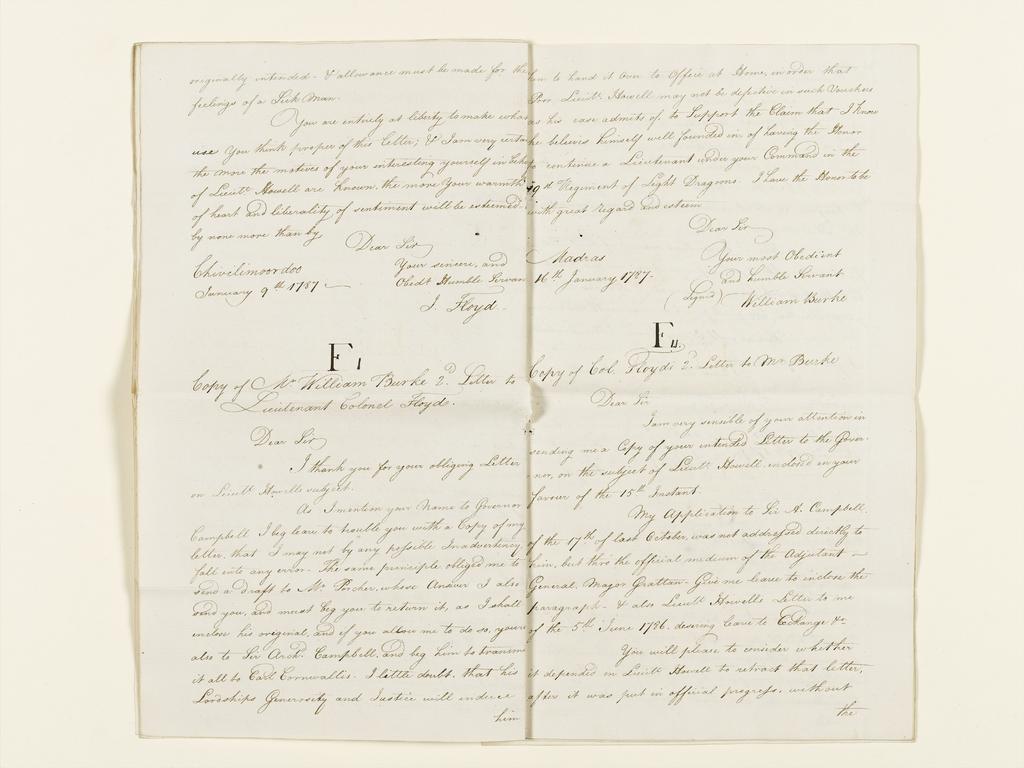 originally intended - & allowance must be made for the
feelings of a Sick Man.
You are entirely at liberty to make what
use You think proper of this Letter; & I am very certain
the more the motives of your interesting yourself in behalf
of Lieutt. Howell are known, the more Your warmth
of heart and liberality of sentiment will be esteemed -
by none more than by
Dear Sir
Chivilimoordoo
January 9th 1787
Your sincere, and
Obedt Humble Servant
J. Floyd.
F I
Copy of Mr. William Burke 2d. Letter to
Lieutenant Colonel Floyd.
Dear Sir
I thank you for your obliging Letter
on Lieutt. Howells subject.
As I mention your Name to Governor
Campbell I beg leave to trouble you with a Copy of my
letter, that I may not by any possible Inadvertency
fall into any error - The same principle obliged me to
send a draft to Mr. Porcher, whose Answer I also
send you, and must beg you to return it, as I shall
inclose his original, and if you allow me to do so, yours
also to Sir Archd. Campbell, and beg him to transmit
it all to Earl Cornwallis. I little doubt, that his
Lordships Generosity and Justice will induce
him
him to hand it over to Office at Home, in order that
Poor Lieutt. Howell may not be defective in such Vouchers
as his case admits of, to Support the Claim that I know
he believes himself well founded in, of having the Honor
to continue a Lieutenant under your Command in the
19th Regiment of Light Dragoons. I have the Honor to be
with great regard and esteem
Dear Sir
Madras
16th January 1787.
Your most Obedient
and humble Servant
(Signed) William Burke
F II.
Copy of Col. Floyds 2d. Letter to Mr Burke
Dear Sir
I am very sensible of your attention in
sending me a Copy of your intended Letter to the Gover-
nor, on the subject of Lieutt. Howell, inclosed in your
favour of the 15th Instant.
My Application to Sir A. Campbell,
of the 17th of last October, was not addressed directly to
him, but thro the official medium of the Adjutant -
General, Major Grattan - Give me leave to inclose the
paragraph - & also Lieutt. Howells Letter to me
of the 5th June 1786. desiring leave to Exchange &c
You will please to consider whether
it depended in Lieutt. Howell to retract that letter,
after it was put in official progress, without
the